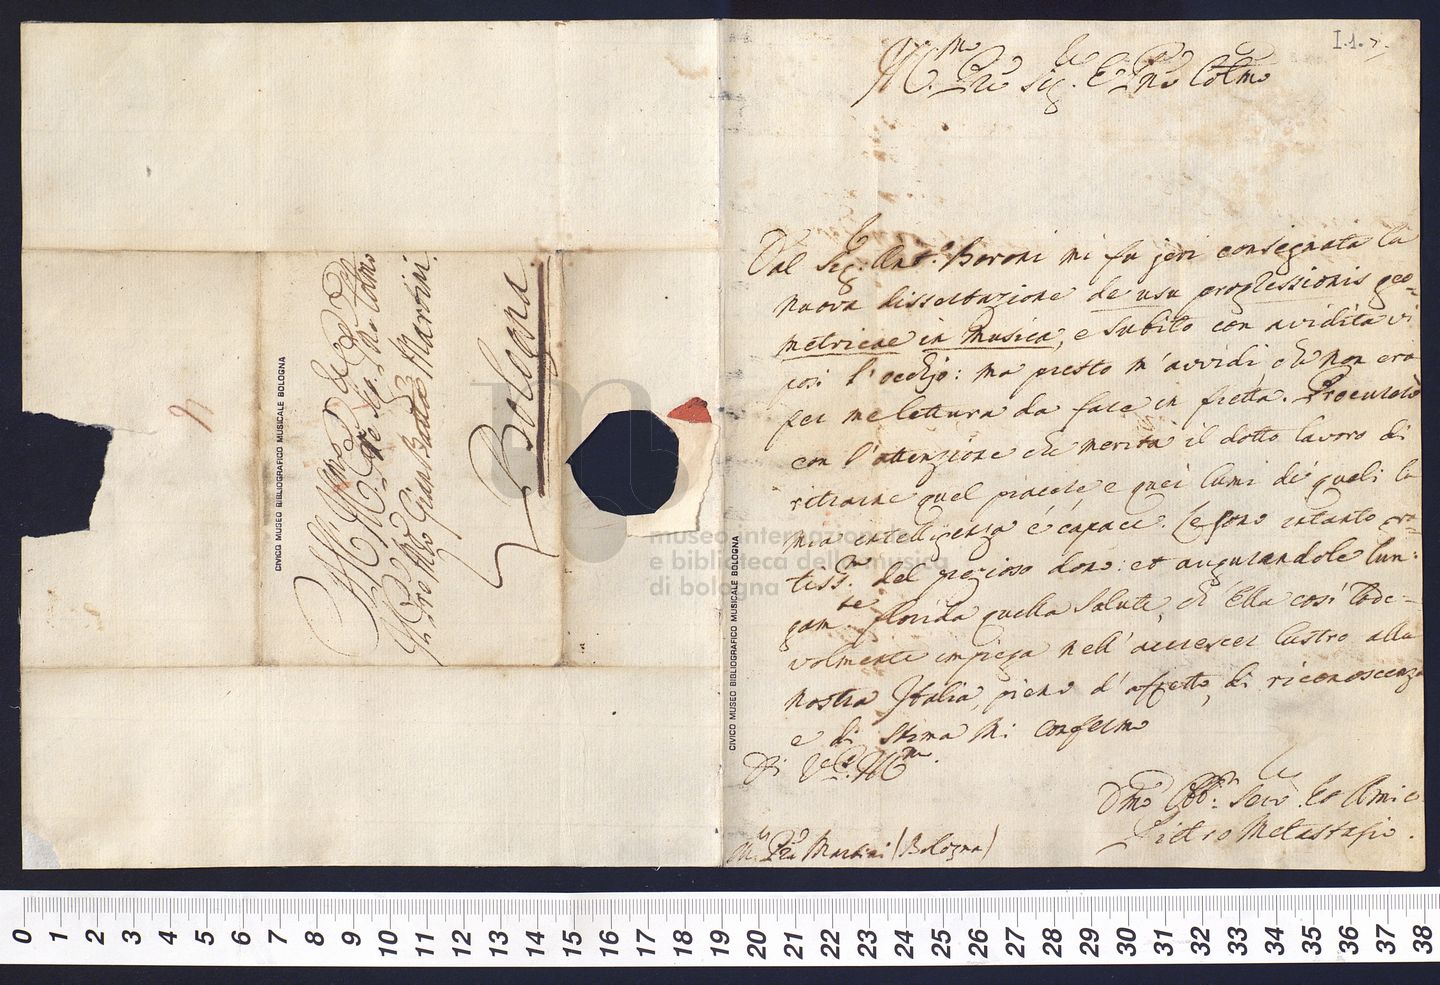 I.1.7.
M.to Rdo Pre Sig.r e Pne Colmo
Dal Sig.r Ant.o Boroni mi fu jeri consegnata la
nuova dissertazione de usu progressionis geo-
metricae in musica, e subito con avidità vi
posi l'occhjo: ma presto m'avvidi che non era
per me lettura da fare in fretta. Procurerò
con l'attenzione che merita il dotto lavoro di
ritrarne quel piacere e quei lumi de' quali la
mia intelligenza è capace. Le sono intanto gra-
tiss.mo del prezioso dono: et augurandole lun-
gam.te florida quella salute, ch'Ella così lode-
volmente impiega nell'accrescer lustro alla
nostra Italia, pieno d'affetto, di riconoscenza
e di stima mi confermo
Di V.P. M.to
Dmo Obb.mo Serv.e ed Amico
Pietro Metastasio.
M.to Rdo Pre Martini (Bologna)
Al M.to Rdo
Pre Sig.r Pne Colmo
Il Pre Mro Giambatta Martini
Bologna
CIVICO MUSEO BIBLIOGRAFICO MUSICALE BOLOGNA
CIVICO MUSEO BIBLIOGRAFICO MUSICALE BOLOGNA
museo internazionale
e biblioteca della musica
di bologna
0 1 2 3 4 5 6 7 8 9 10 11 12 13 14 15 16 17 18 19 20 21 22 23 24 25 26 27 28 29 30 31 32 33 34 35 36 37 38